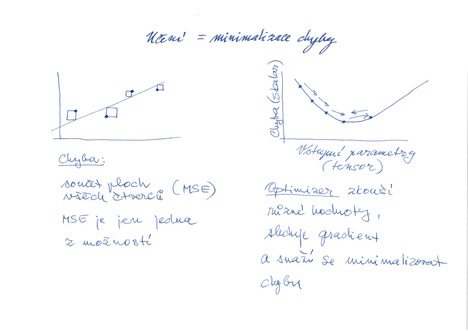 Učení = minimalizace chyby
Chyba:
součet ploch
všech čtverců (MSE)
MSE je jen jedna
z možností
Chyba (skalar)
Vstupní parametry
(tensor)
Optimizer zkouší
různé hodnoty,
sleduje gradient
a snaží se minimalizovat
chybu